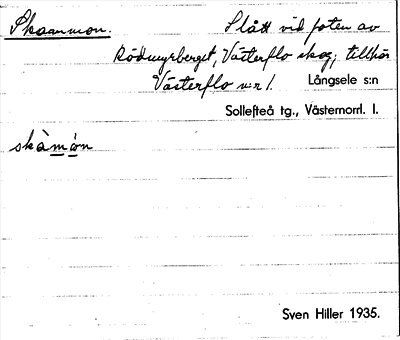 Skammon. Slått vid foten av
Rödmyrberget, Västerflo skog, tillhör
Västerflo n:r 1. Långsele s:n
Sollefteå tg., Västernorrl. l.
skàmòn
Sven Hiller 1935.